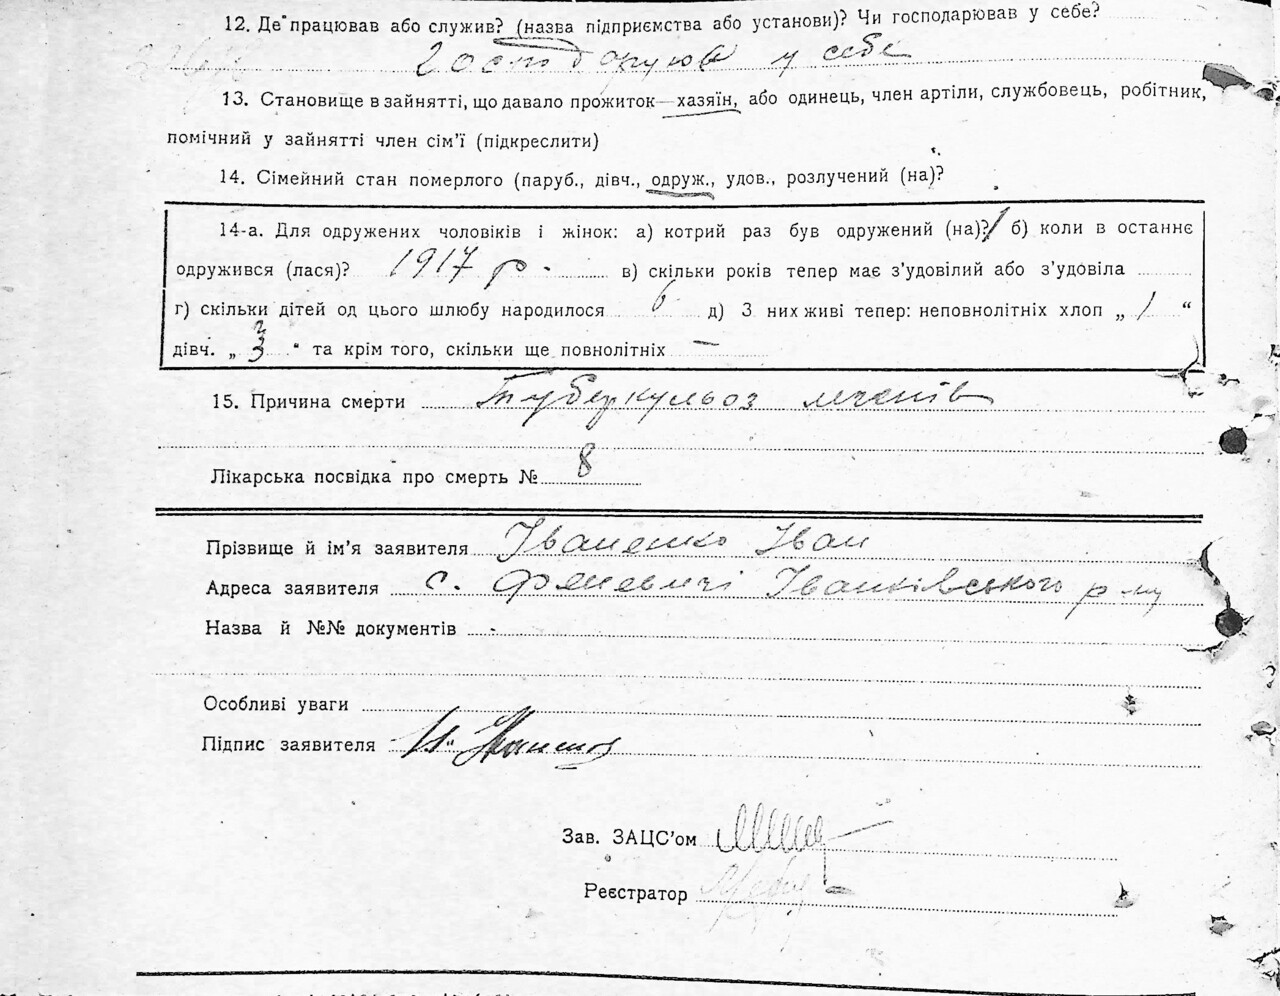 12. Де працював або служив? (назва підприємства або установи)? Чи господарював у себе?
Господарював у себе
13. Становище в зайнятті, що давало прожиток—хазяїн, або одинець, член артіли, службовець, робітник,
помічний у зайнятті член сім'ї (підкреслити)
14. Сімейний стан померлого (паруб., дівч., одруж., удов., розлучений (на)?
14-а. Для одружених чоловіків і жінок: а) котрий раз був одружений (на)? 1 б) коли в останнє
одружився (лася)? 1917 р. в) скільки років тепер має з'удовілий або з'удовіла
г) скільки дітей од цього шлюбу народилося 6 д) З них живі тепер: неповнолітніх хлоп „ 1 “
дівч. „ 3 " та крім того, скільки ще повнолітніх —
15. Причина смерти Туберкульоз легенів
Лікарська посвідка про смерть № 8
Прізвище й ім'я заявителя Іваненко Іван
Адреса заявителя с. Феневичі Іванківського р-ну
Назва й №№ документів -
Особливі уваги
Підпис заявителя
Зав. ЗАЦС'ом
Реєстратор